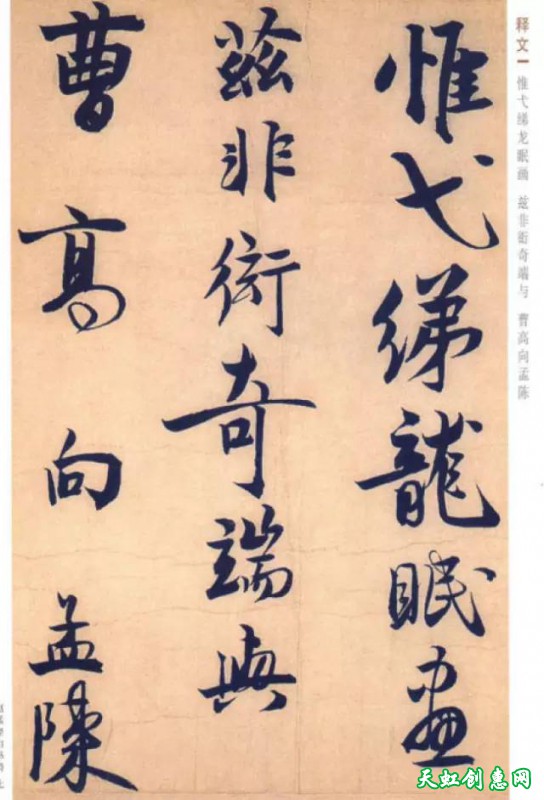 释文一 惟弋绨龙眠画 兹非衒奇端与 曹高向孟陈
惟弋綈龍眠畫
茲非衒奇端與
曹高向孟陳
天虹创惠网